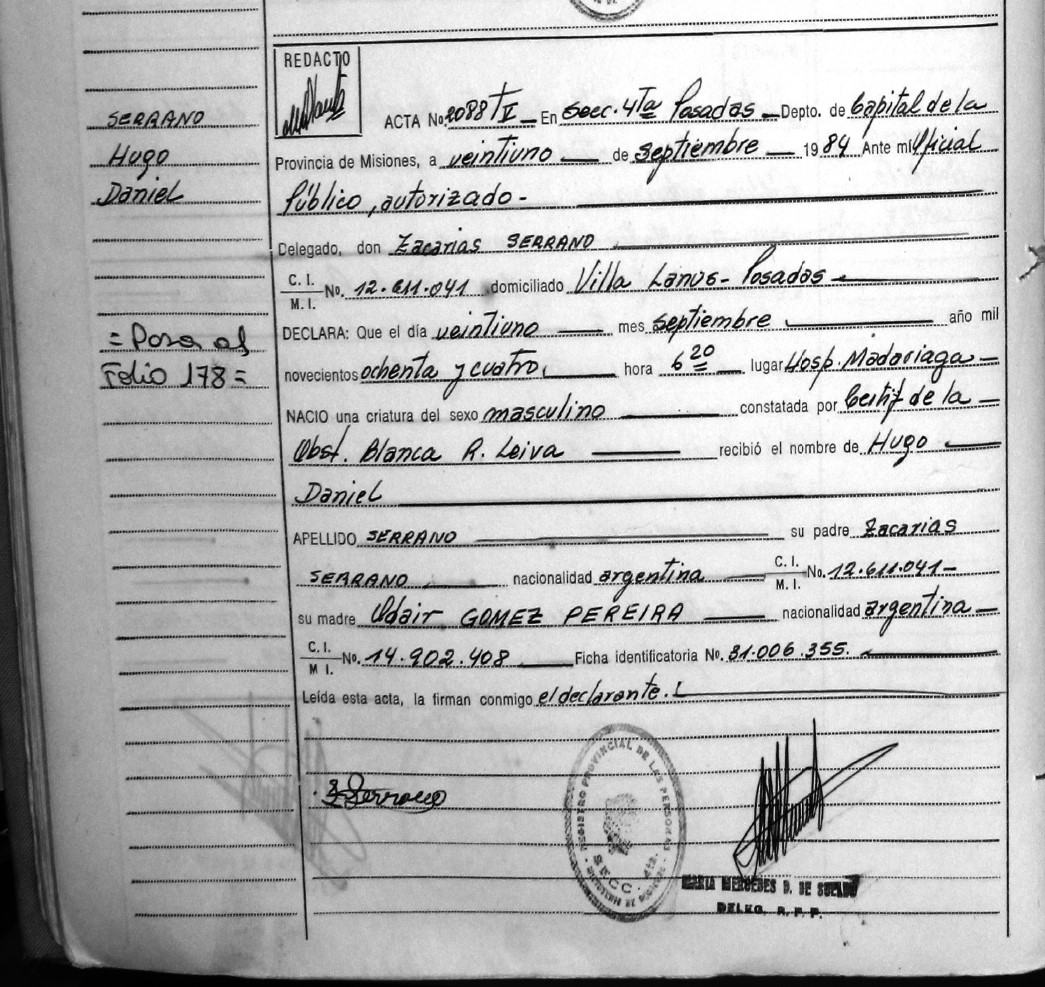 REDACTO
SERRANO
Hugo
Daniel
= Pasa al
Folio 178 =
ACTA No. 2088 T II En Secc. 4Ta Posadas Depto. de Capital de la
Provincia de Misiones, a veintiuno de septiembre 1984 Ante mi Oficial
Público, autorizado -
Delegado, don Zacarias SERRANO
C. I. / M. I. No. 12.611.041 domiciliado Villa Lanus - Posadas -
DECLARA: Que el día veintiuno mes septiembre año mil
novecientos ochenta y cuatro, hora 6 20 lugar Hosp. Madariaga
NACIO una criatura del sexo masculino constatada por Certif de la
Obst. Blanca R. Leiva recibió el nombre de Hugo
Daniel
APELLIDO SERRANO su padre Zacarias
SERRANO nacionalidad argentina C. I. / M. I. No. 12.611.041 -
su madre Odair GOMEZ PEREIRA nacionalidad argentina
C. I. / M I. No. 14.902.408 Ficha identificatoria No. 31.006.355.
Leída esta acta, la firman conmigo el declarante.
Z Serrano
REGISTRO PROVINCIAL DE LAS PERSONAS
SECC. 4ta.
MARIA MERCEDES D. DE
DELEG. R. P. P.